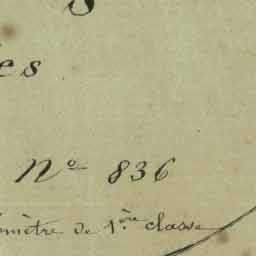 es
Nº 836
mètre de 1ère classe